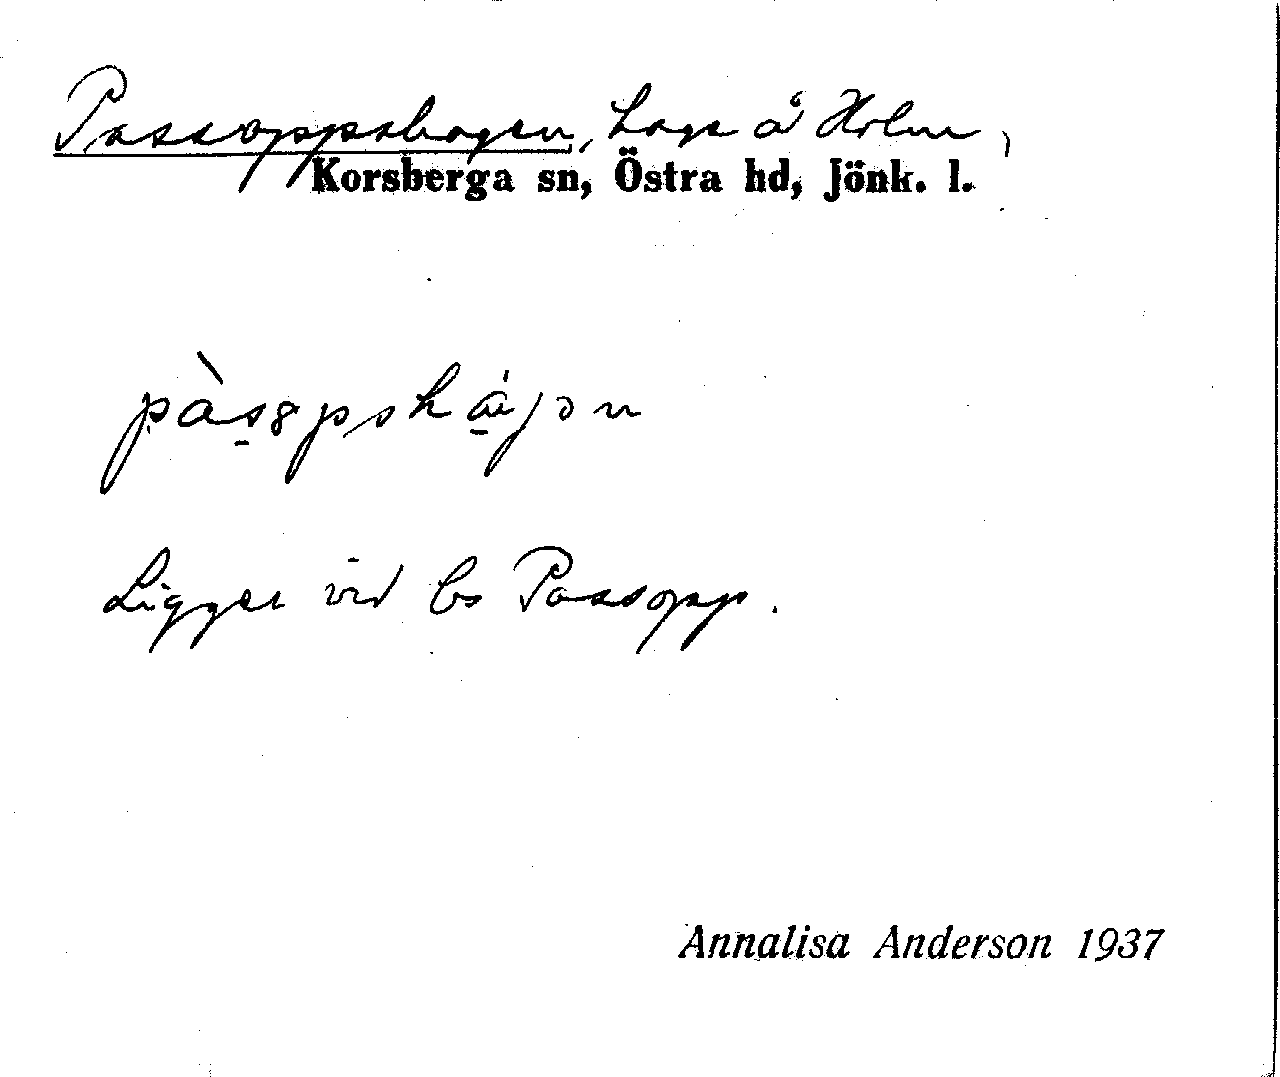 Passoppshagen, hage å Holm,
Korsberga sn, Östra hd, Jönk. l.
Ligger vid bs Passopp.
Annalisa Anderson 1937